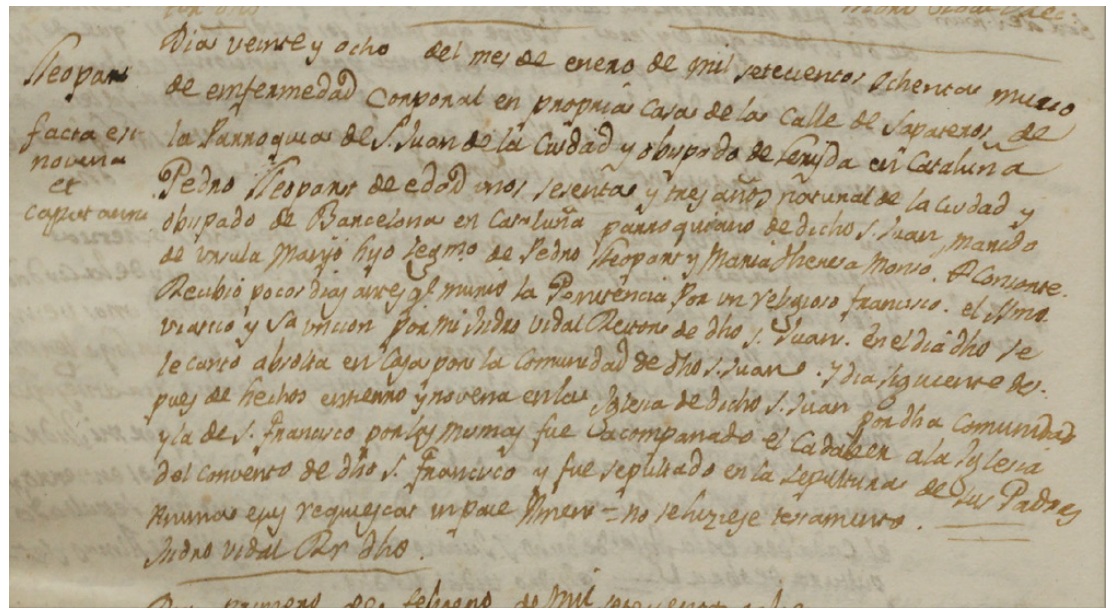 Lleopart
facta est
novena
et
caput anni
Dia veinte y ocho del mes de enero de mil setecientos ochenta murio
de enfermedad Corporal en propria Casa de la Calle de Sapateros de
la Parroquia de S. Juan de la Ciudad y obispado de Lerida en Cataluña
Pedro Lleopart de edad unos sesenta y tres años natural de la Ciudad y
obispado de Barcelona en Cataluña parroquiano de dicho S. Juan, marido
de Ursula hijo legmo. de Pedro Lleopart y Maria Theresa Consorte.
Recibió pocos dias antes qe. murio la Penitencia por un religioso francisco. el SSmo.
viatico y Sta uncion por mi Isidro Vidal Rector de dho S. Juan. en el dia dho se
le cantó absolta en Casa por la Comunidad de dho S. Juan. Y dia siguiente des-
pues de hechos entierro y novena en la Iglesia de dicho S. Juan por dha Comunidad
y la de S. Francisco por las mismas fue acompañado el Cadaver a la Iglesia
del convento de dho S. Francisco y fue sepultado en la sepultura de sus Padres
Anima ejus requiescat in pace Amen = no se hiziese testamento.
Isidro Vidal Rr dho
Dia primero de febrero de mil setecientos